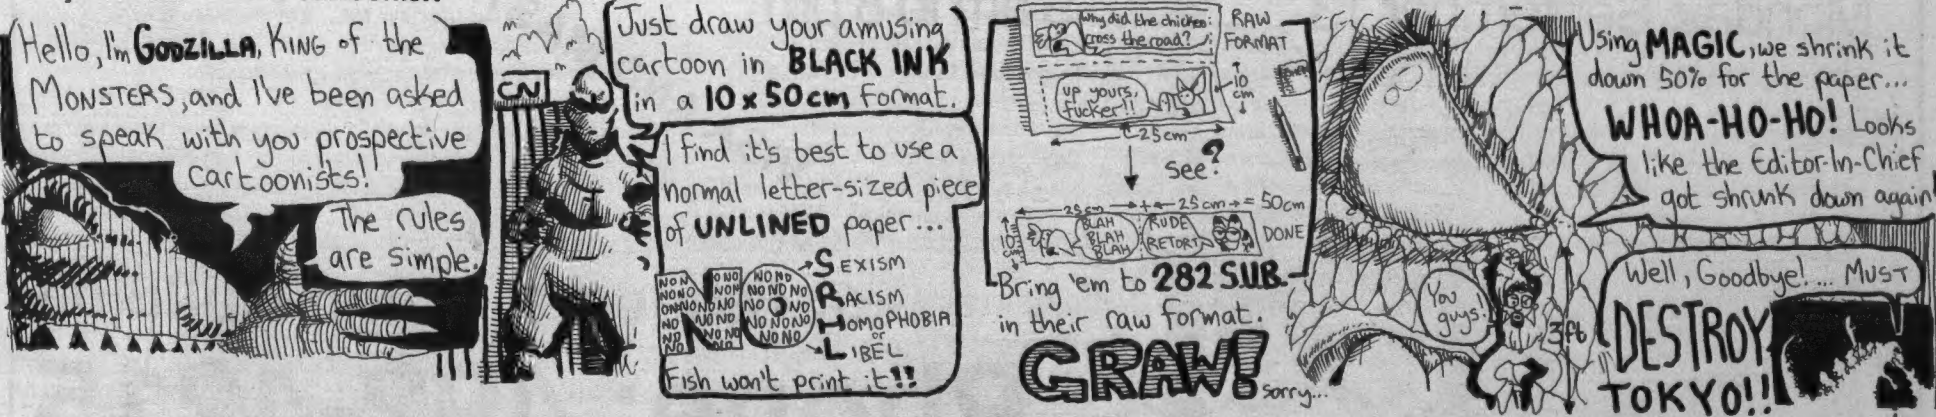 Hello, I'm GODZILLA, KING of the
MONSTERS, and I've been asked
to speak with you prospective
cartoonists!
The rules
are simple.
CN
Just draw your amusing
cartoon in BLACK INK
in a 10 x 50cm format.
I find it's best to use a
normal letter-sized piece
of UNLINED paper...
NO
SEXISM
RACISM
HOMOPHOBIA
or
LIBEL
Fish won't print it!!
Why did the chicken
cross the road?
up yours,
fucker!!
RAW
FORMAT
10
cm
25cm
See?
25cm + 25cm = 50cm
10
cm
BLAH
BLAH
BLAH
RUDE
RETORT
DONE
Bring 'em to 282 S.U.B.
in their raw format.
GRAW!
sorry...
Using MAGIC, we shrink it
down 50% for the paper...
WHOA-HO-HO! Looks
like the Editor-In-Chief
got shrunk down again
You
guys!
3ft
Well, Goodbye!... MUST
DESTROY
TOKYO!!